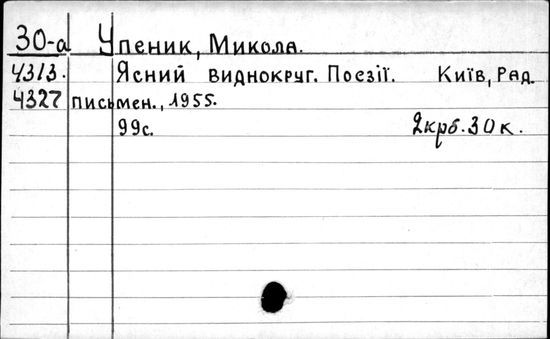 30-а Упеник, Микола.
4313. Ясний виднокруг. Поезії. Київ, Рад.
4327 письмен., 1955.
99с. 2крб. 30к.